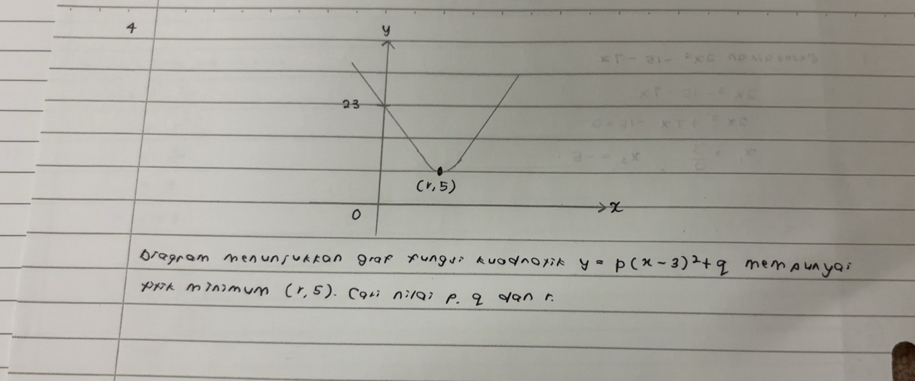 4
y
23
(r, 5)
0
x
Diagram menunjukkan graf fungsi kuadratik y = p(x - 3)² + q mempunyai
titik minimum (r, 5). Cari nilai p, q dan r.